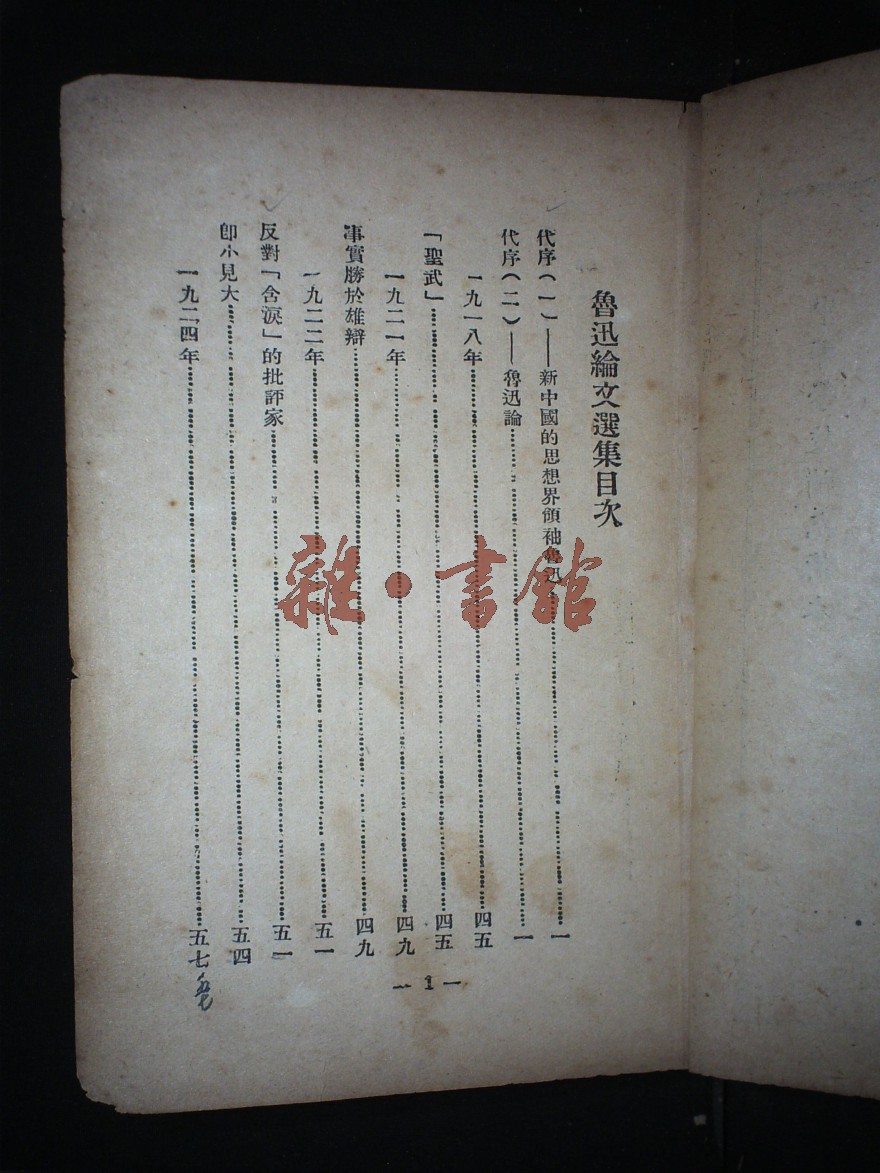 魯迅論文選集目次
代序（一）——新中國的思想界領袖魯迅……一
代序（二）——魯迅論……一
一九一八年……四五
「聖武」……四五
一九二一年……四九
事實勝於雄辯……四九
一九二二年……五一
反對「含淚」的批評家……五一
卽小見大……五四
一九二四年……五七
— 1 —
雜·書館